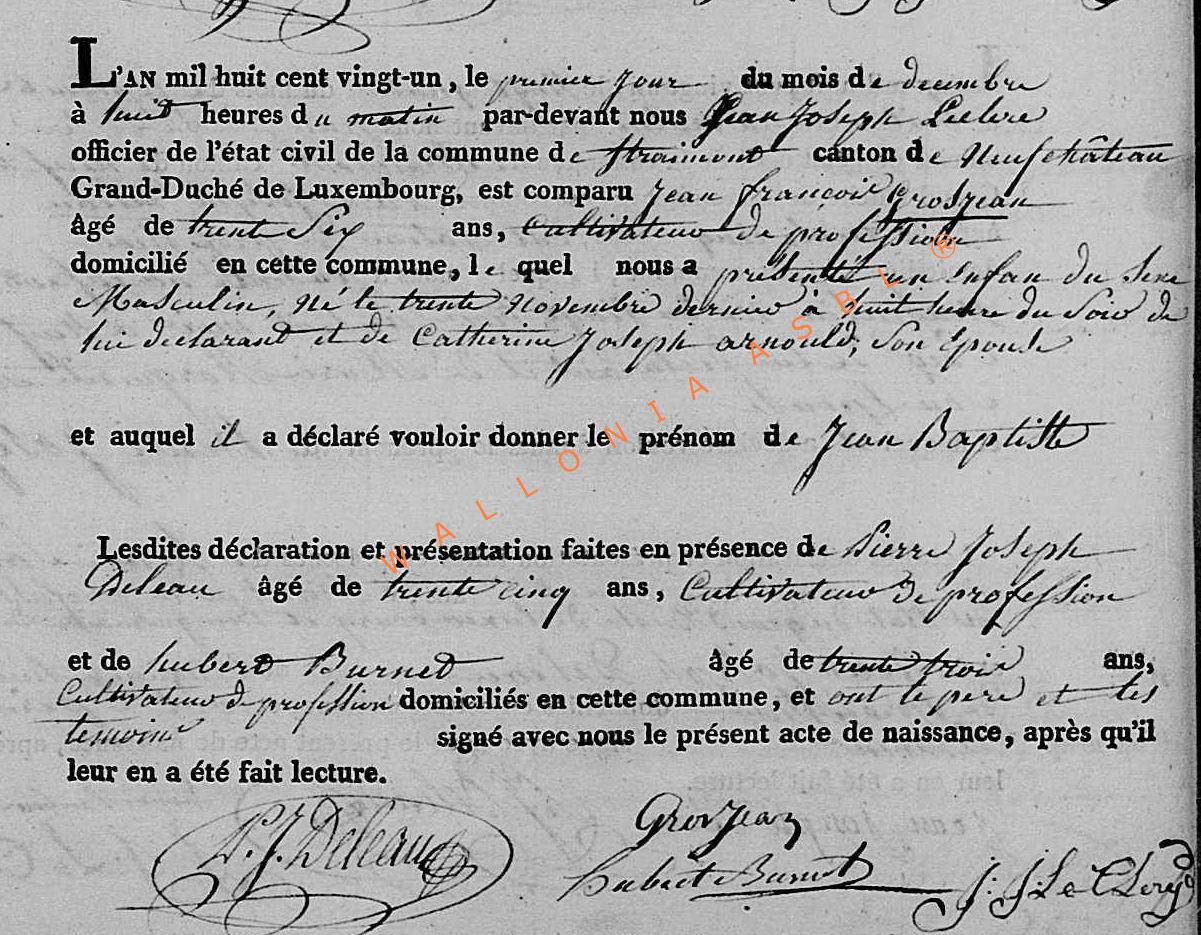 L'AN mil huit cent vingt-un, le premier jour du mois de decembre
à huit heures du matin par-devant nous Jean Joseph Leclere
officier de l'état civil de la commune de Straimont canton de Neufchâteau
Grand-Duché de Luxembourg, est comparu Jean françois Grosjean
âgé de trent Six ans, Cultivateur de profession
domicilié en cette commune, le quel nous a présenté un Enfan du Sexe
Masculin, né le trente Novembre dernier à huit heure du Soir de
lui declarant et de Catherine Joseph arnould, Son Epouse
et auquel il a déclaré vouloir donner le prénom de Jean Baptiste
Lesdites déclaration et présentation faites en présence de Pierre Joseph
Deleau âgé de trente cinq ans, Cultivateur de profession
et de hubert Burnet âgé de trente trois ans,
Cultivateur de profession domiciliés en cette commune, et ont le pere et les
temoins signé avec nous le présent acte de naissance, après qu'il
leur en a été fait lecture.
P. J. Deleau
GrosJean
hubert Burnet
J: J Le Clere
WALLONIA ASBL ®